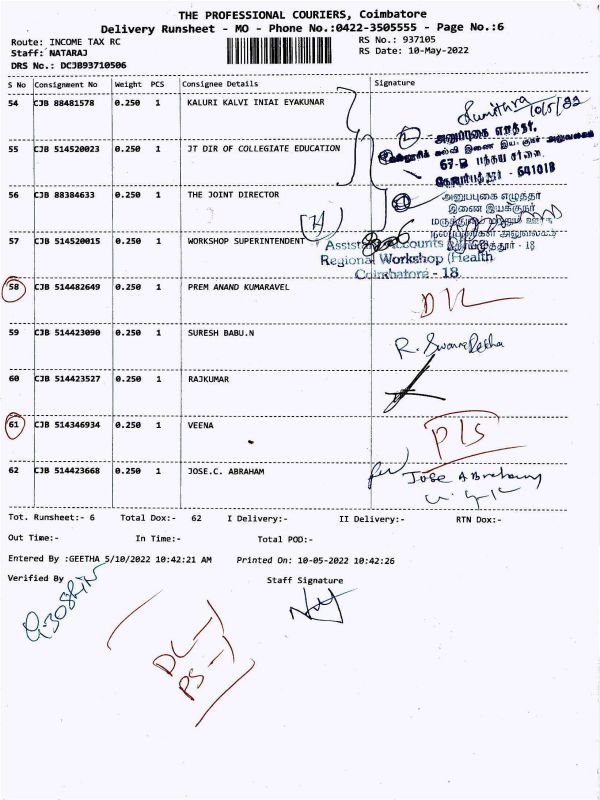 THE PROFESSIONAL COURIERS, Coimbatore
Delivery Runsheet - MO - Phone No.:0422-3505555 - Page No.:6
Route: INCOME TAX RC RS No.: 937105
Staff: NATARAJ RS Date: 10-May-2022
DRS No.: DCJB93710506
S No Consignment No Weight PCS Consignee Details Signature
54 CJB 88481578 0.250 1 KALURI KALVI INIAI EYAKUNAR
10/5/22
55 CJB 514520023 0.250 1 JT DIR OF COLLEGIATE EDUCATION
அனுப்புகை எழுத்தர்.
67-B பந்தய சாலை
- 641018
56 CJB 88384633 0.250 1 THE JOINT DIRECTOR
அனுப்புகை எழுத்தர்
இணை இயக்குநர்
57 CJB 514520015 0.250 1 WORKSHOP SUPERINTENDENT
Accounts
Regional Workshop (Health
Coimbatore - 18.
58 CJB 514482649 0.250 1 PREM ANAND KUMARAVEL
DL
59 CJB 514423090 0.250 1 SURESH BABU.N
60 CJB 514423527 0.250 1 RAJKUMAR
61 CJB 514346934 0.250 1 VEENA
PLS
62 CJB 514423668 0.250 1 JOSE.C. ABRAHAM
Jose Abraham
Tot. Runsheet:- 6 Total Dox:- 62 I Delivery:- II Delivery:- RTN Dox:-
Out Time:- In Time:- Total POD:-
Entered By :GEETHA 5/10/2022 10:42:21 AM Printed On: 10-05-2022 10:42:26
Verified By Staff Signature
DL-1
PS-1